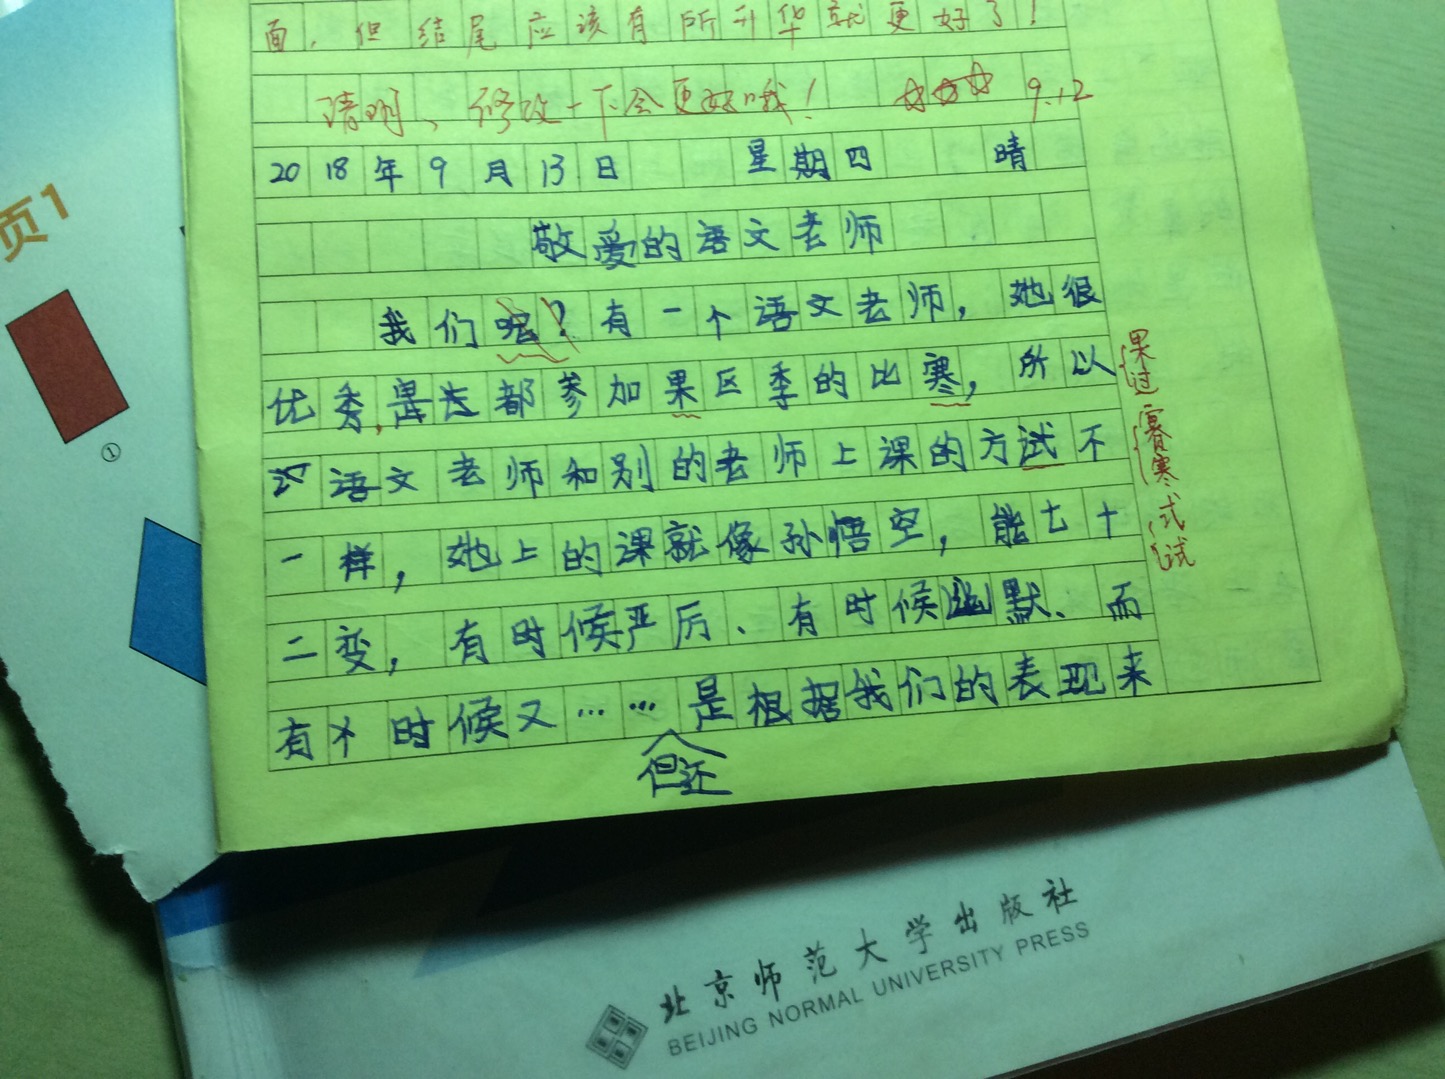 面，但结尾应该有所升华就更好了！
请明、修改一下会更好哦！ 9.12
2018年9月13日 星期四 晴
敬爱的语文老师
我们呢？有一个语文老师，她很
优秀，曾去都参加果区季的比寒，所以
语文老师和别的老师上课的方试不
一样，她上的课就像孙悟空，能七十
二变，有时候严厉、有时候幽默、而
有时候又……是根据我们的表现来
但还
果过
赛寒
式试
页1
①
北京师范大学出版社
BEIJING NORMAL UNIVERSITY PRESS